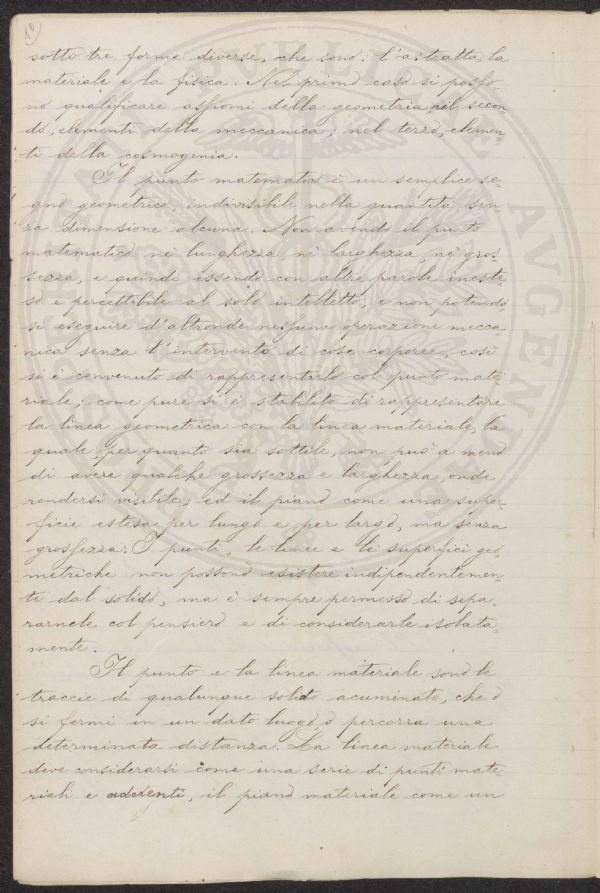 10
sotto tre forme diverse, che sono: l'astratta, la
materiale e la fisica. Nel primo caso si posso-
no qualificare assiomi della geometria, nel secon-
do, elementi della meccanica; nel terzo, elemen-
ti della cosmogenia.
Il punto matematico è un semplice se-
gno geometrico, indivisibile nella quantità sen-
za dimensione alcuna. Non avendo il punto
matematico nè lunghezza nè larghezza, nè gros-
sezza, e quindi essendo con altre parole ineste-
so e percettibile al solo intelletto, e non potendo-
si eseguire d'altronde nessuna operazione mecca-
nica senza l'intervento di cose corporee, così
si è convenuto di rappresentarlo col punto mate-
riale; come pure si è stabilito di rappresentare
la linea geometrica con la linea materiale, la
quale per quanto sia sottile, non può a meno
di avere qualche grossezza e larghezza, onde
rendersi visibile; ed il piano come una super-
ficie estesa per lungo e per largo, ma senza
grossezza. I punti, le linee e le superfici geo-
metriche non possono esistere indipendentemen-
te dal solido, ma è sempre permesso di sepa-
rarnele col pensiero e di considerarle isolata-
mente.
Il punto e la linea materiale sono le
traccie di qualunque solido acuminato, che o
si fermi in un dato luogo o percorra una
determinata distanza. La linea materiale
deve considerarsi come una serie di punti mate-
riali e aderenti, il piano materiale come un